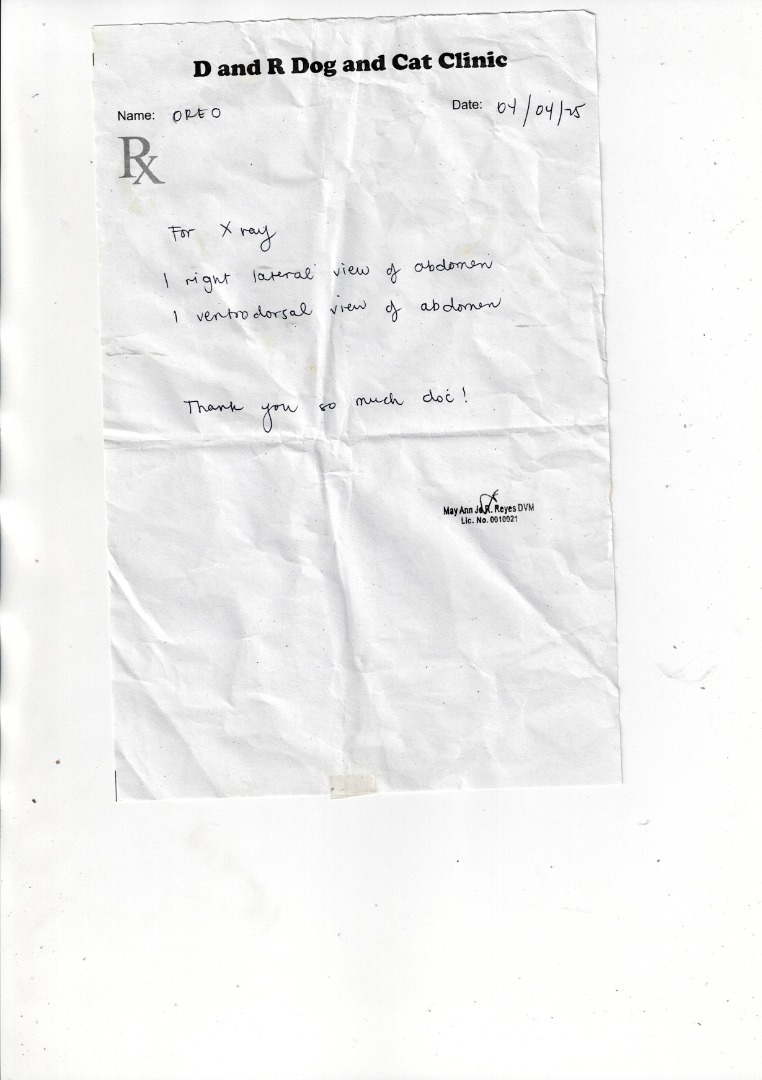 D and R Dog and Cat Clinic
Name: OREO Date: 04/04/25
Rx
For X ray
1 right lateral view of abdomen
1 ventrodorsal view of abdomen
Thank you so much doc!
May Ann Reyes DVM
Lic. No. 0010021